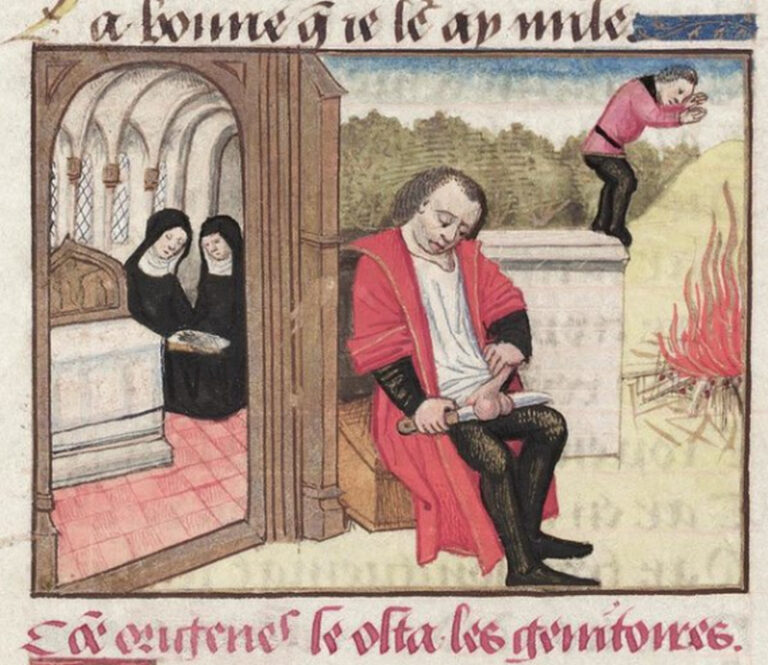 La bonne q̃ ie lē ay mise.
Cōe origenes se osta les genitoires.